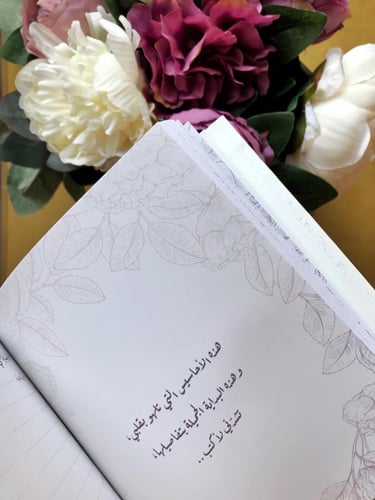 هذه الأحاسيس التي تلهو بقلبي،
وهذه البداية الجميلة بتفاصيلها،
تدفعني لأكتب..